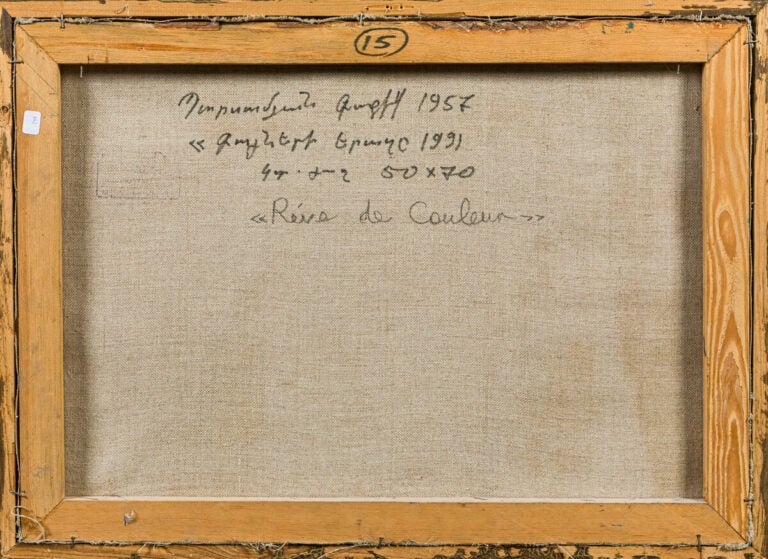 15
Պարսամյան Գագիկ 1957
« Գույների Երազը 1991
Կտ. յուղ 50x70
«Rêve de Couleur»